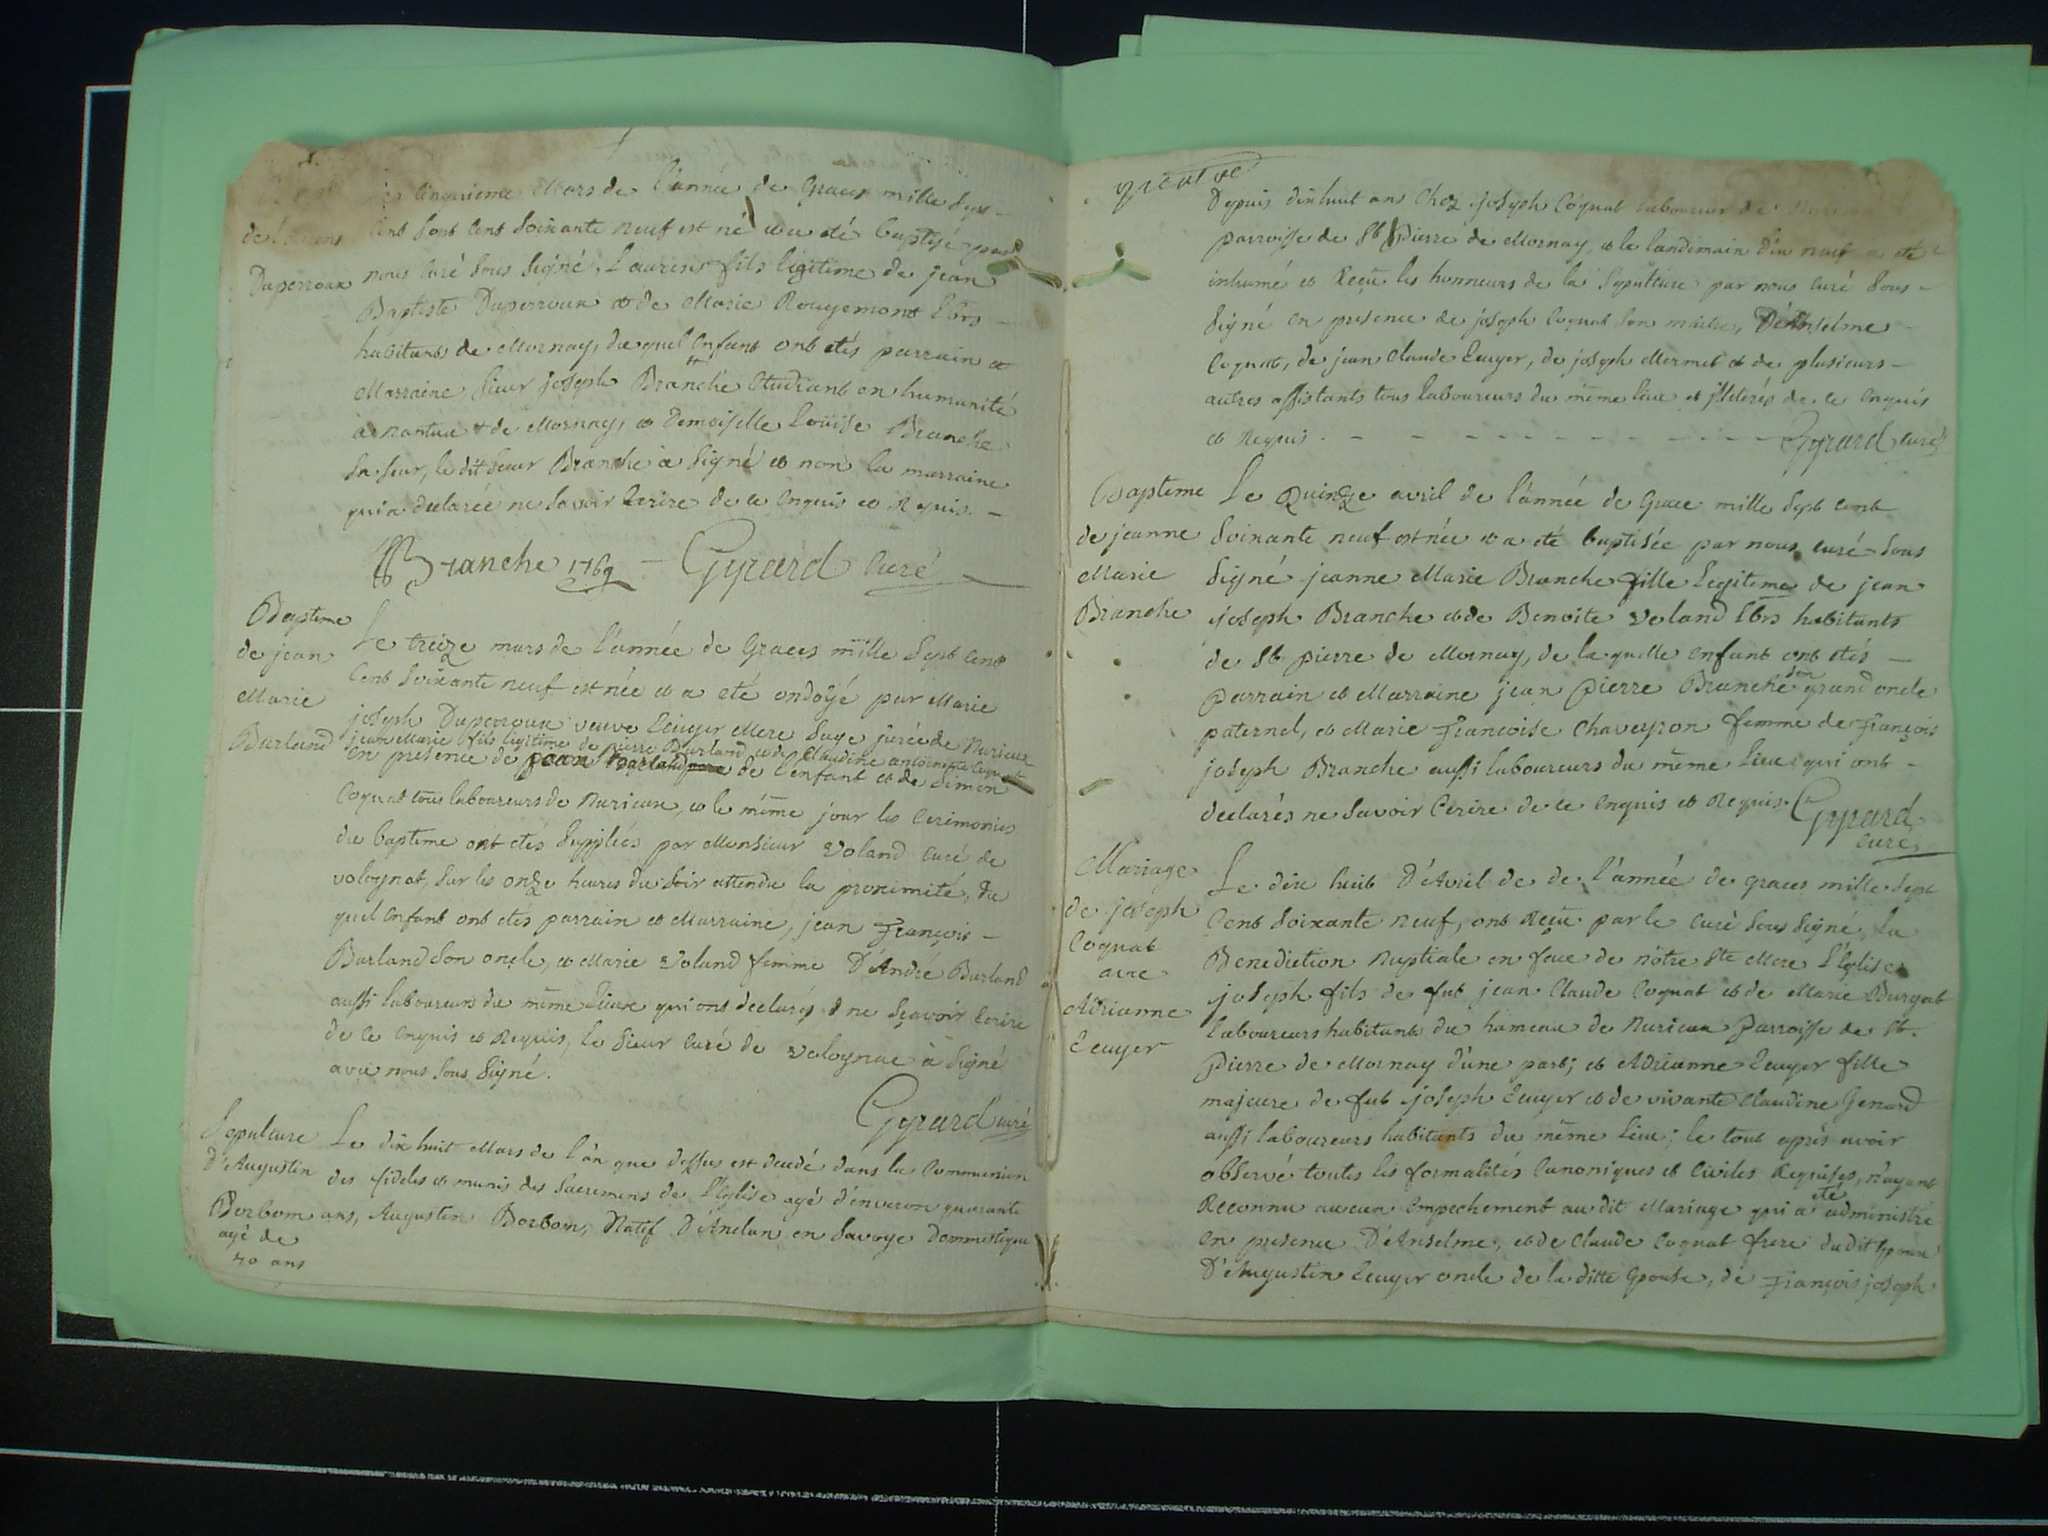 cinquieme Mars de l'année de Graces mille Sept
de Laurens
Cent Sept Cent Soixante neuf est né et a eté baptisé par
Duperroux
nous Curé Sous Signé, Laurens fils legitime de jean
Baptiste Duperroux et de Marie Rougemont Lbrs
habitants de Mornay, du quel Enfant ont etés parrain et
Marraine, Sieur joseph Branche Etudiant en humanité
à nantua & de Mornay, et Demoiselle Loüise Branche
Sa Seur, le dit Sieur Branche a Signé et non la marraine
qui a declarée ne Savoir Ecrire de ce Enquis et Requis.
Branche 1769 - Gyrard Curé
Bapteme
de jean
Marie
Burland
Le treize mars de l'année de Graces mille Sept Cent
Cent Soixante neuf est née et a eté ondoÿé par Marie
joseph Duperroux veuve Ecuyer Mere Sage jurée de Nurieux
jean Marie fils legitime de pierre Burland et de Claudine antoinette Coqnat
en presence de jean Burland pere de l'enfant et de Simon
Coqnat tous laboureurs de Nurieux, et le même jour les Ceremonies
du bapteme ont etés Suppléés par Monsieur Voland Curé de
volognat, Sur les onze heures du Soir attendu la proximité, du
quel Enfant ont etés parrain et Marraine, jean François
Burland Son oncle, et Marie Voland femme D'André Burland
aussi laboureurs du même Lieux qui ont declarés ne Sçavoir Ecrire
de ce Enquis et Requis, le Sieur Curé de Volognat à Signé
avec nous Sous Signé.
Gyrard curé
Sepulture
D'Augustin
Borbom
agé de
40 ans
Le dix huit Mars de l'an que dessus est decedé dans la Communion
des fideles et munis des Sacremens de l'Eglise agé d'environ quarante
ans, Augustin Borbom, Natif D'Anclan en Savoye Dommestique
Depuis dixhuit ans Chez joseph Coqnat laboureur de
parroisse de St Pierre de Mornay, et le landemain dix neuf a eté
inhumé et Reçu les honneurs de la Sepulture par nous Curé Sous
Signé en presence de joseph Coqnat Son maitre, D'Anselme
Coqnat, de jean Claude Ecuyer, de joseph Mermet et de plusieurs
autres assistants tous laboureurs du même lieu et illiterés de ce Enquis
et Requis. - - - - - - - - - - Gyrard curé
Bapteme
de jeanne
Marie
Branche
Le Quinze avril de l'année de Grace mille Sept Cent
Soixante neuf est née et a eté baptisée par nous curé Sous
Signé jeanne Marie Branche fille Legitime de jean
joseph Branche et de Benoite Voland Lbrs habitants
de St pierre de Mornay, de laquelle Enfant ont etés
parrain et Marraine jean Pierre Branche Son grand oncle
paternel, et Marie Francoise Chaveyron femme de François
joseph Branche aussi laboureurs du même Lieu qui ont
declarés ne Savoir Ecrire de ce Enquis et Requis. Gyrard
Curé
Mariage
de joseph
Coqnat
avec
Adrianne
Ecuyer
Le dix huit D'Avril de de l'année de graces mille Sept
Cent Soixante neuf, ont Reçu par le Curé Sous Signé, La
Benediction Nuptiale en face de nôtre Ste Mere L'Eglise
joseph fils de fut jean Claude Coqnat et de Marie Burgat
laboureurs habitants du hameau de Nurieux Parroisse de St.
Pierre de Mornay d'une part; et Adrianne Ecuyer fille
majeure de fut joseph Ecuyer et de vivante Claudine Genard
aussi laboureurs habitants du même Lieu; le tout après avoir
observé toutes les formalités Canoniques et Civiles Requises, n'ayant
Reconnu aucun Empechement au dit Mariage qui a eté administré
En presence D'Anselme, et de Claude Coqnat frere du dit Epoux
D'Augustin Ecuyer oncle de la ditte Epouse, de François joseph